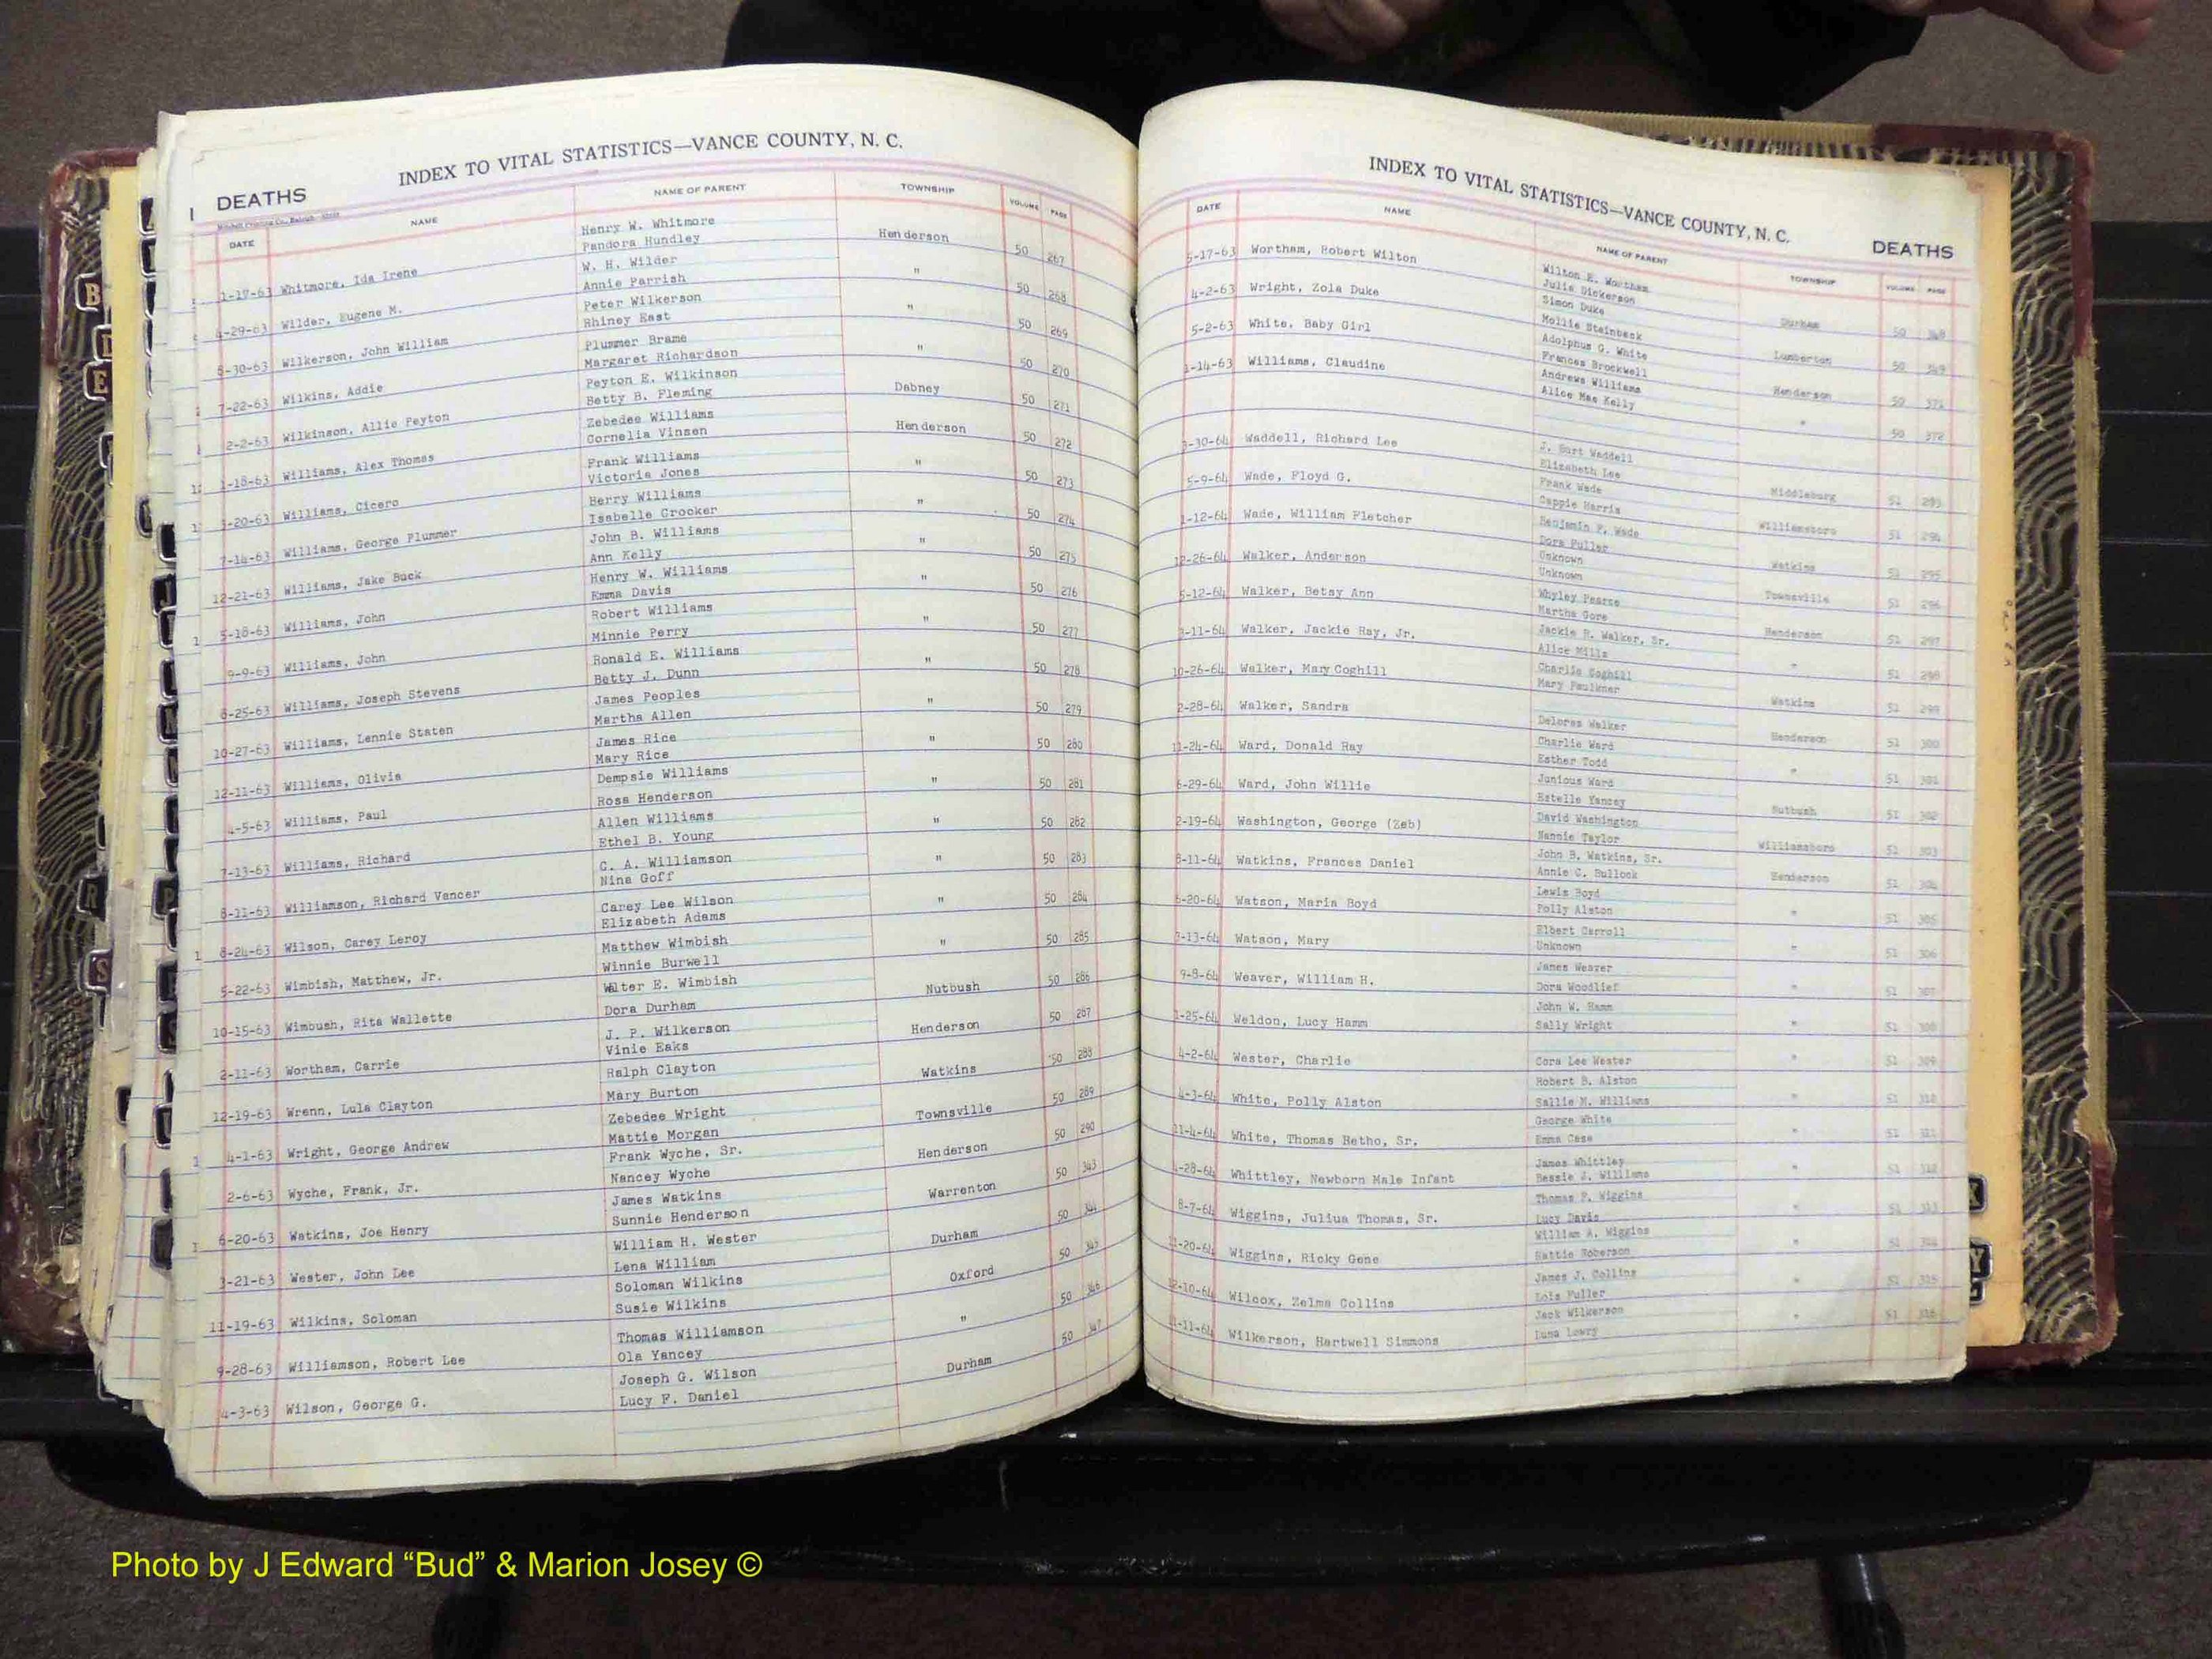 DEATHS
INDEX TO VITAL STATISTICS—VANCE COUNTY, N. C.
DATE NAME NAME OF PARENT TOWNSHIP VOLUME PAGE
Henry W. Whitmore
1-17-63 Whitmore, Ida Irene Pandora Hundley Henderson 50 267
W. H. Wilder
4-29-63 Wilder, Eugene M. Annie Parrish " 50 268
Peter Wilkerson
8-30-63 Wilkerson, John William Rhiney East " 50 269
Plummer Brame
7-22-63 Wilkins, Addie Margaret Richardson " 50 270
Peyton E. Wilkinson
2-2-63 Wilkinson, Allie Peyton Betty B. Fleming Dabney 50 271
Zebedee Williams
1-18-63 Williams, Alex Thomas Cornelia Vinsen Henderson 50 272
Frank Williams
Williams, Cicero Victoria Jones " 50 273
Berry Williams
7-14-63 Williams, George Plummer Isabelle Crocker " 50 274
John B. Williams
12-21-63 Williams, Jake Buck Ann Kelly " 50 275
Henry W. Williams
5-18-63 Williams, John Emma Davis " 50 276
Robert Williams
9-9-63 Williams, John Minnie Perry " 50 277
Ronald E. Williams
Williams, Joseph Stevens Betty J. Dunn " 50 278
James Peoples
10-27-63 Williams, Lennie Staten Martha Allen " 50 279
James Rice
12-11-63 Williams, Olivia Mary Rice " 50 280
Dempsie Williams
4-5-63 Williams, Paul Rosa Henderson " 50 281
Allen Williams
7-13-63 Williams, Richard Ethel B. Young " 50 282
C. A. Williamson
8-11-63 Williamson, Richard Vancer Nina Goff " 50 283
Carey Lee Wilson
8-24-63 Wilson, Carey Leroy Elizabeth Adams " 50 284
Matthew Wimbish
5-22-63 Wimbish, Matthew, Jr. Winnie Burwell " 50 285
Walter E. Wimbish
10-15-63 Wimbush, Rita Wallette Dora Durham Nutbush 50 286
J. P. Wilkerson
2-11-63 Wortham, Carrie Vinie Eaks Henderson 50 287
Ralph Clayton
12-19-63 Wrenn, Lula Clayton Mary Burton Watkins 50 288
Zebedee Wright
4-1-63 Wright, George Andrew Mattie Morgan Townsville 50 289
Frank Wyche, Sr.
2-6-63 Wyche, Frank, Jr. Nancey Wyche Henderson 50 290
James Watkins
6-20-63 Watkins, Joe Henry Sunnie Henderson Warrenton 50 343
William H. Wester
3-21-63 Wester, John Lee Lena William Durham 50 344
Soloman Wilkins
11-19-63 Wilkins, Soloman Susie Wilkins Oxford 50 345
Thomas Williamson
9-28-63 Williamson, Robert Lee Ola Yancey " 50 346
Joseph G. Wilson
4-3-63 Wilson, George G. Lucy F. Daniel Durham 50 347
INDEX TO VITAL STATISTICS—VANCE COUNTY, N. C.
DEATHS
DATE NAME NAME OF PARENT TOWNSHIP VOLUME PAGE
Wilton E. Wortham
5-17-63 Wortham, Robert Wilton Julia Dickerson Durham 50 348
Simon Duke
4-2-63 Wright, Zola Duke Mollie Stainback Lumberton 50 349
Adolphus G. White
5-2-63 White, Baby Girl Frances Brockwell Henderson 50 371
Andrews Williams
1-14-63 Williams, Claudine Alice Mae Kelly " 50 372
J. Burt Waddell
Waddell, Richard Lee Elizabeth Lee Middleburg 51 293
Frank Wade
5-9-64 Wade, Floyd G. Cappie Harris Williamsboro 51 294
Benjamin F. Wade
1-12-64 Wade, William Fletcher Dora Fuller Watkins 51 295
Unknown
12-26-64 Walker, Anderson Unknown Townsville 51 296
Whyley Pearce
5-12-64 Walker, Betsy Ann Martha Gore Henderson 51 297
Jackie R. Walker, Sr.
Walker, Jackie Ray, Jr. Alice Mills " 51 298
Charlie Coghill
10-26-64 Walker, Mary Coghill Mary Faulkner Watkins 51 299
2-28-64 Walker, Sandra Delores Walker Henderson 51 300
Charlie Ward
11-24-64 Ward, Donald Ray Esther Todd " 51 301
Junious Ward
6-29-64 Ward, John Willie Estelle Yancey Nutbush 51 302
David Washington
2-19-64 Washington, George (Zeb) Nannie Taylor Williamsboro 51 303
John B. Watkins, Sr.
8-11-64 Watkins, Frances Daniel Annie C. Bullock Henderson 51 304
Lewis Boyd
6-20-64 Watson, Maria Boyd Polly Alston " 51 305
Elbert Carroll
Watson, Mary Unknown " 51 306
James Weaver
9-8-64 Weaver, William H. Dora Woodlief " 51 307
John W. Hamm
1-25-64 Weldon, Lucy Hamm Sally Wright " 51 308
4-2-64 Wester, Charlie Cora Lee Wester " 51 309
Robert B. Alston
4-3-64 White, Polly Alston Sallie M. Williams " 51 310
George White
11-4-64 White, Thomas Retho, Sr. Emma Case " 51 311
James Whittley
4-28-64 Whittley, Newborn Male Infant Bessie J. Williams " 51 312
Thomas P. Wiggins
8-7-64 Wiggins, Julius Thomas, Sr. Lucy Davis " 51 313
William A. Wiggins
Wiggins, Ricky Gene Hattie Roberson " 51 314
James J. Collins
12-10-64 Wilcox, Zelma Collins Lois Fuller " 51 315
Jack Wilkerson
Wilkerson, Hartwell Simmons Luna Lowry " 51 316
Photo by J Edward “Bud” & Marion Josey ©